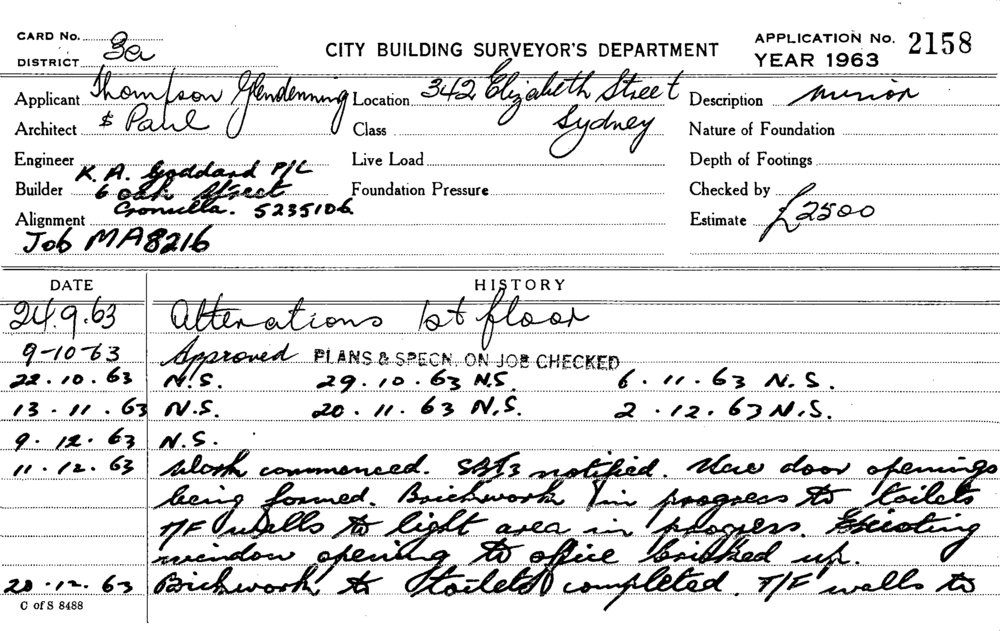 CARD No.
DISTRICT 3a
CITY BUILDING SURVEYOR'S DEPARTMENT
APPLICATION No. 2158
YEAR 1963
Applicant Thompson Glendenning Location 342 Elizabeth Street Description minor
Architect & Paul Class Sydney Nature of Foundation
Engineer K. A. Goddard P/L Live Load Depth of Footings
Builder 6 oak Street Foundation Pressure Checked by
Alignment Cronulla. 5235106 Estimate £2500
Job MA8216
DATE HISTORY
24.9.63 Alterations 1st floor
9-10-63 Approved PLANS & SPECN. ON JOB CHECKED
22.10.63 N.S. 29.10.63 N.S. 6.11.63 N.S.
13.11.63 N.S. 20.11.63 N.S. 2.12.63 N.S.
9.12.63 N.S.
11.12.63 Work commenced. notified. New door openings
being formed. Brickwork in progress to toilets
T/F walls to light area in progress. Existing
window opening to office bricked up.
20.12.63 Brickwork to toilets completed. T/F walls to
C of S 8488